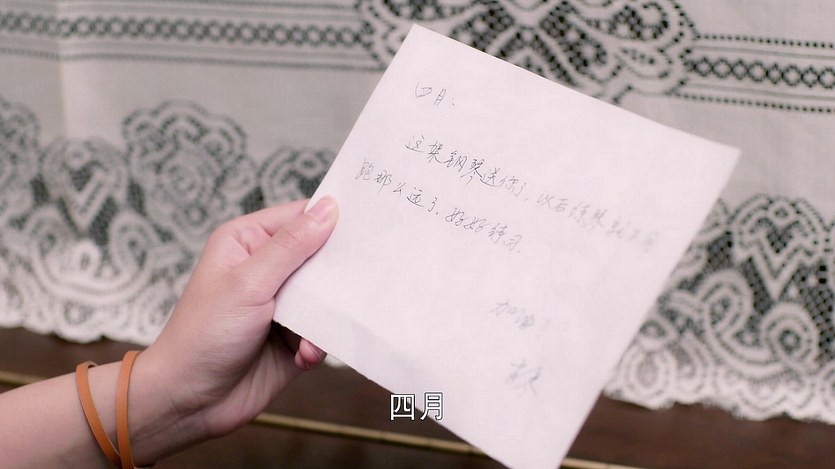 四月：
这架钢琴送你了，以后练琴就不用
跑那么远了，好好练习.
加油！
四月